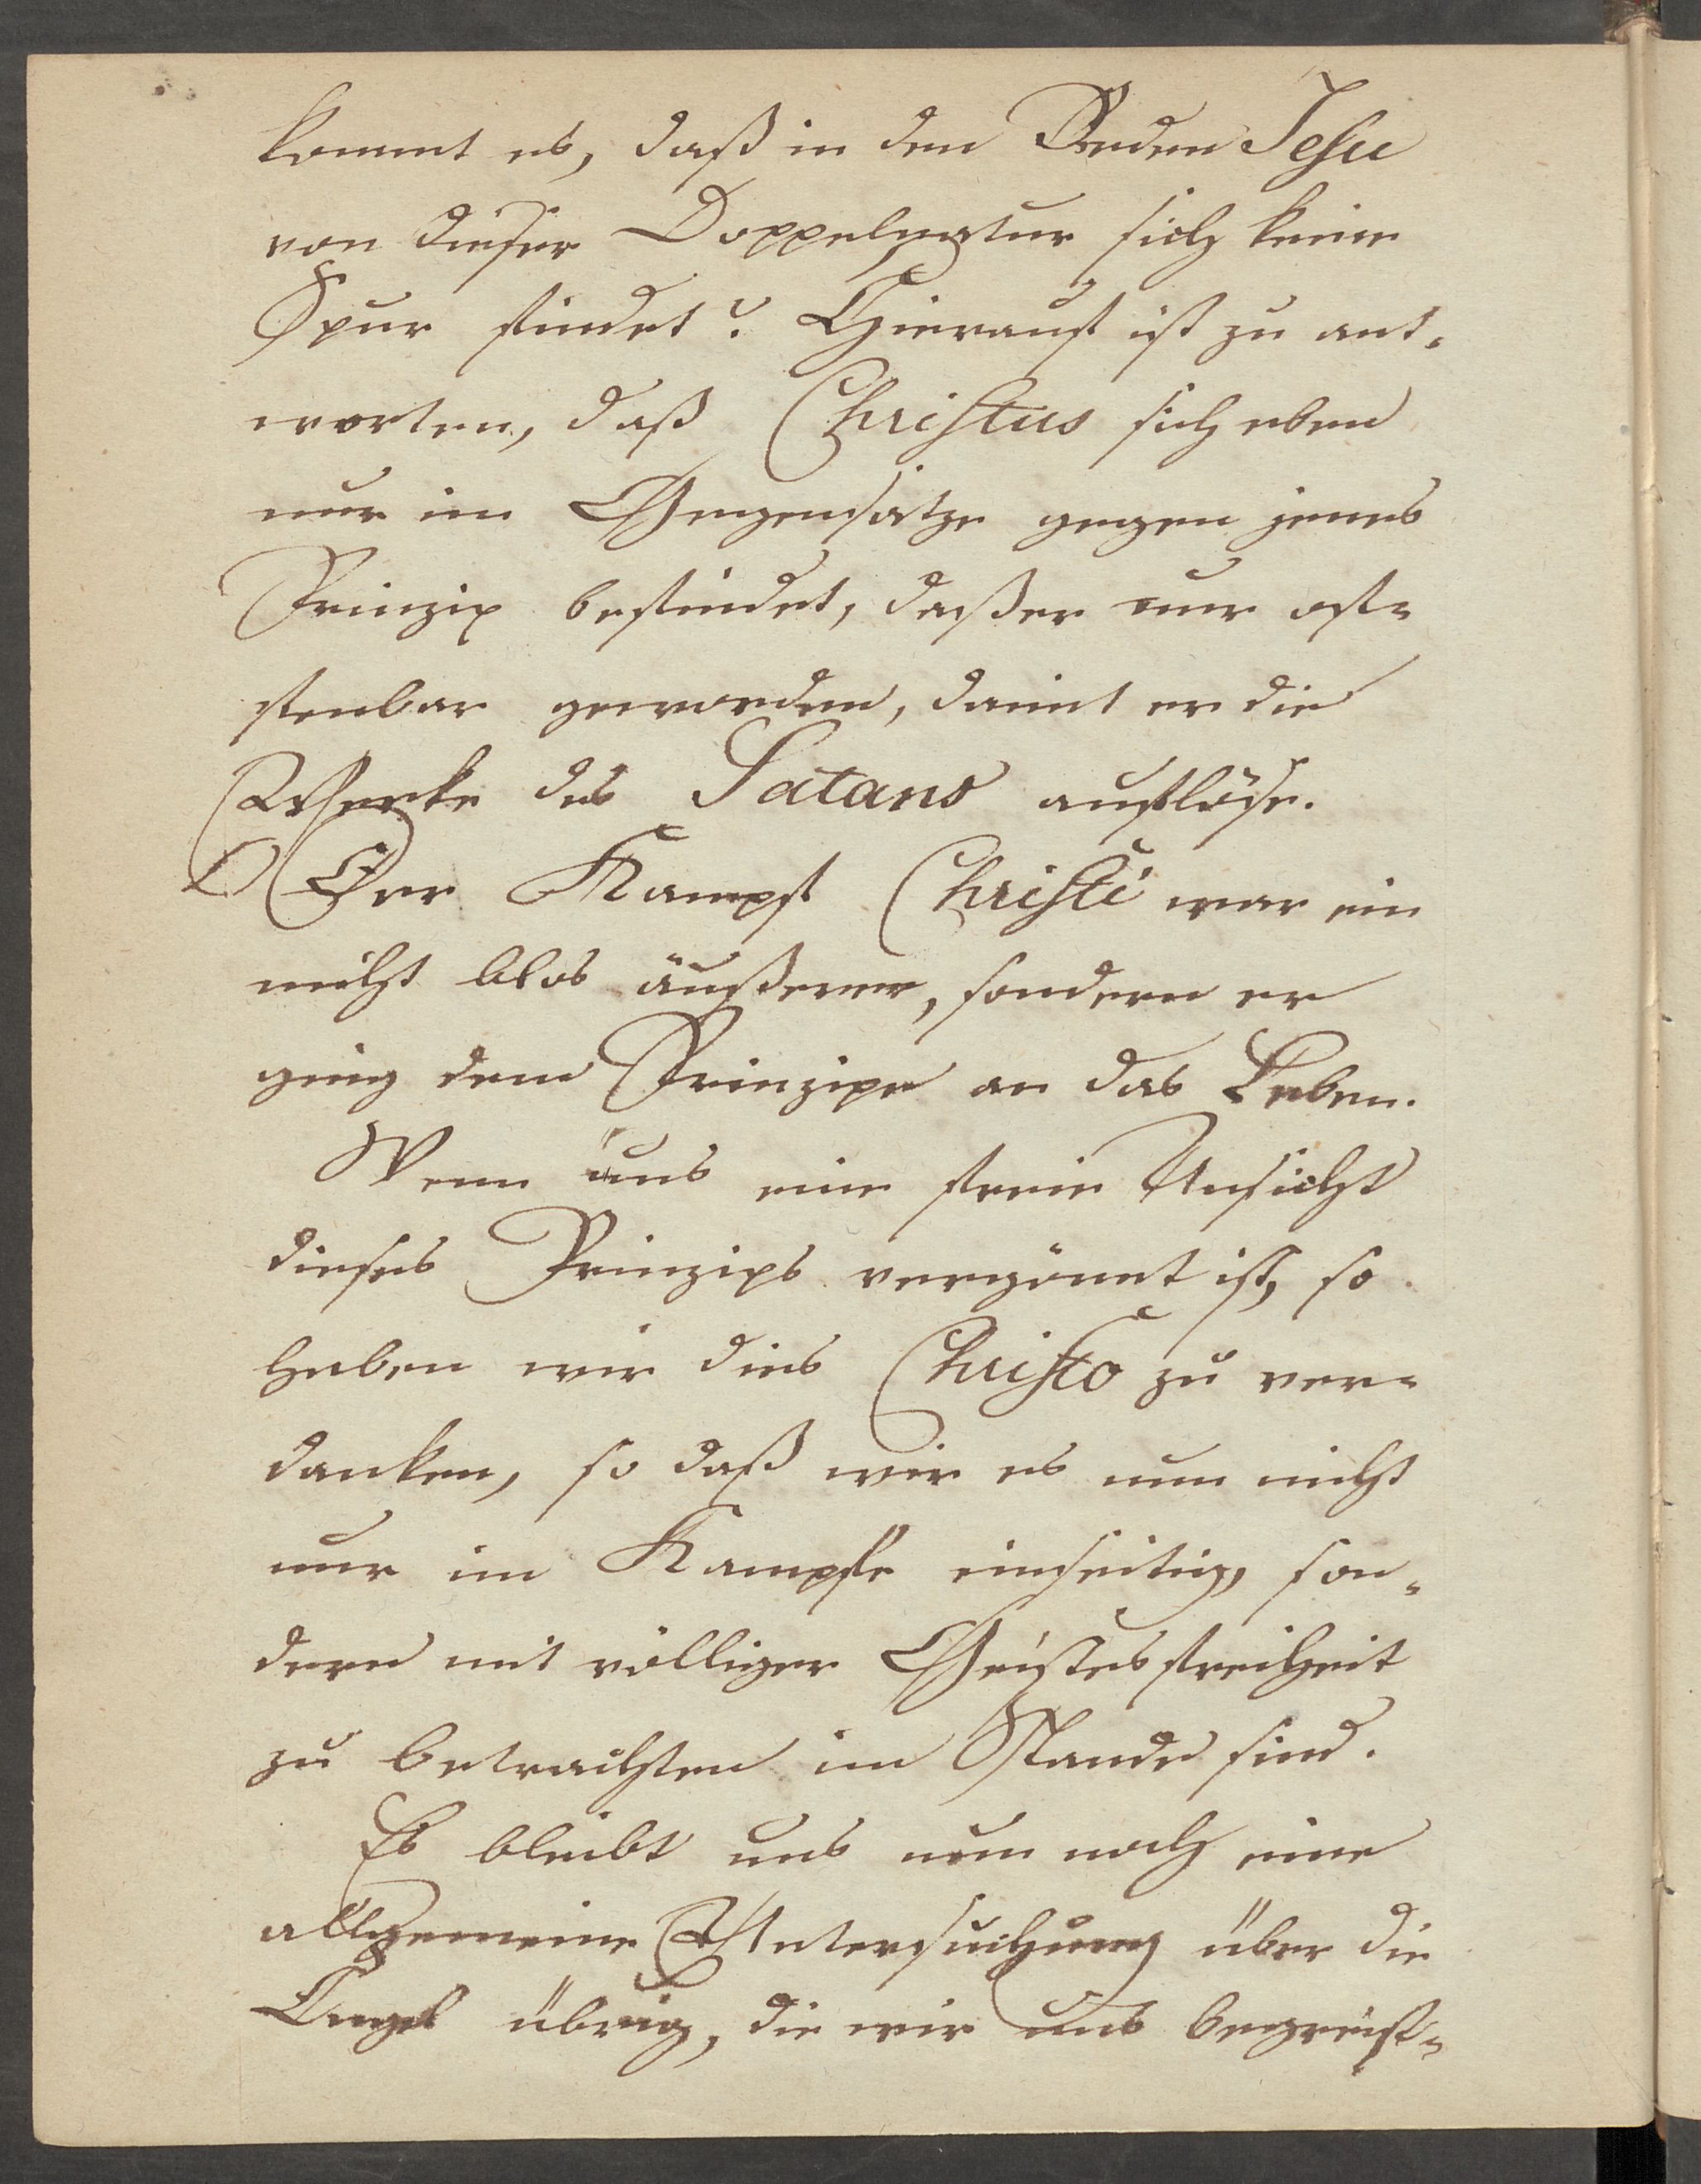 kommt es, daß in den Reden Jesu
von dieser Doppelnatur sich keine
Spur findet? Hierauf ist zu ant-
worten, daß Christus sich eben
nur im Gegensatze gegen jenes
Prinzip befindet, daß er nur of-
fenbar geworden, damit er die
Werke des Satans auflöse.
Der Kampf Christi war ein
nicht blos äußerer, sondern er
ging dem Prinzipe an das Leben.
Wenn uns eine freie Ansicht
dieses Prinzips vergönnt ist, so
haben wir dies Christo zu ver-
danken, so daß wir es nun nicht
nur im Kampfe einseitig, son-
dern mit völliger Geistesfreiheit
zu betrachten im Stande sind.
Es bleibt uns nun noch eine
allgemeine Untersuchung über die
Engel übrig, die wir uns begreif-